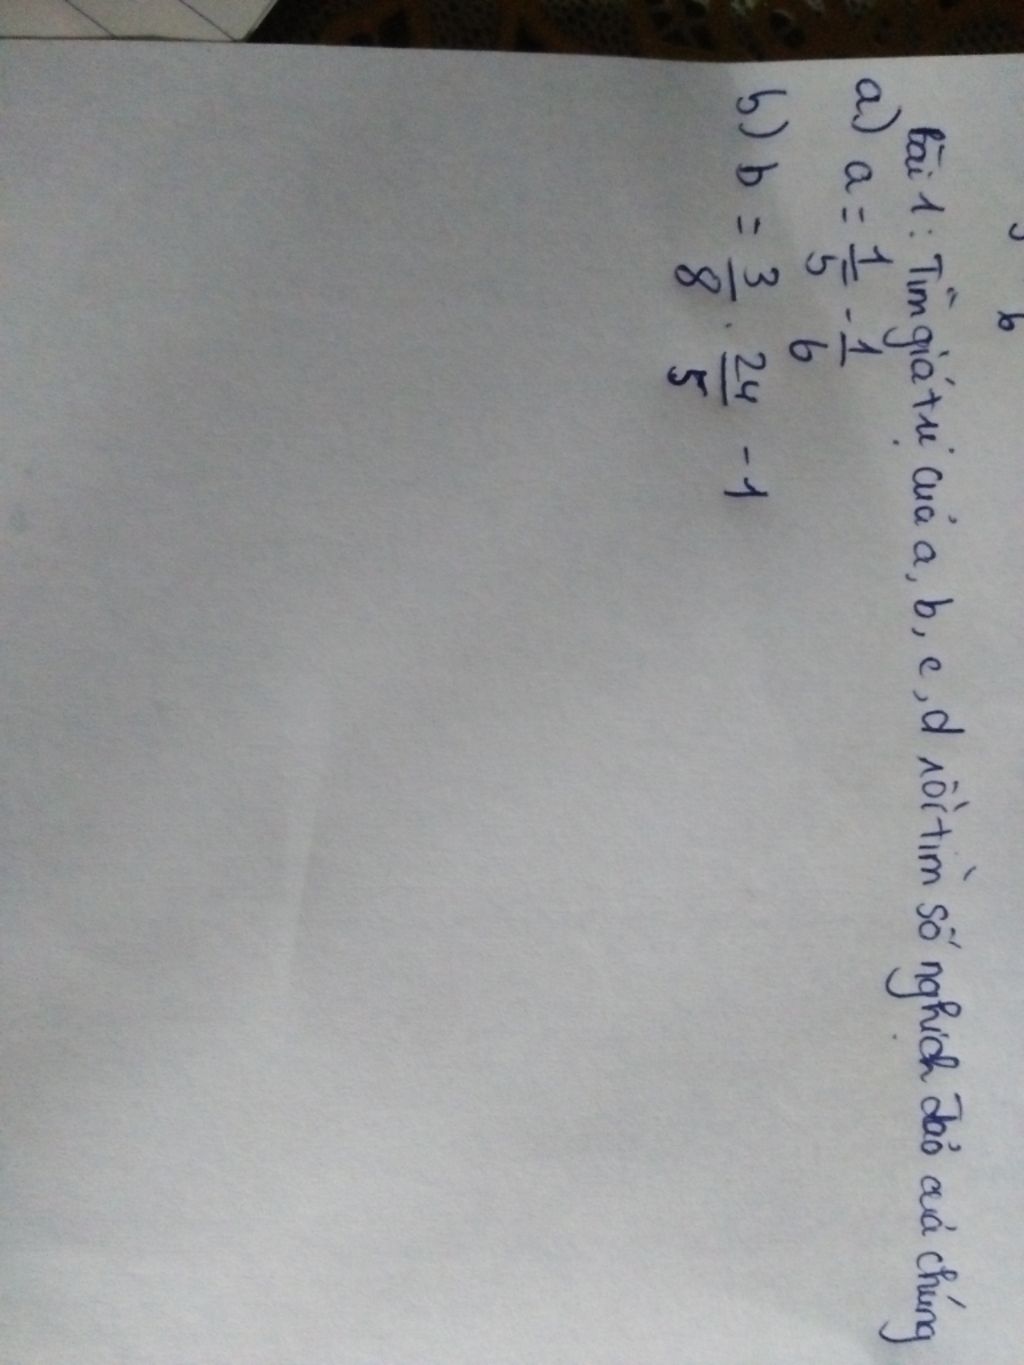 bài 1: Tìm giá trị của a, b, c, d rồi tìm số nghịch đảo của chúng
a) a = 1/5 - 1/6
b) b = 3/8 . 24/5 - 1